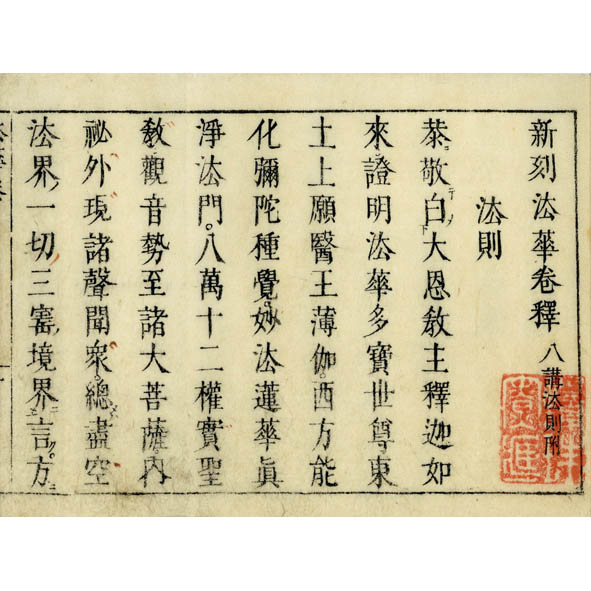 新刻法華卷釋 八講法則附
法則
恭敬白大恩教主釋迦如
來證明法華多寶世尊東
土上願醫王薄伽西方能
化彌陀種覺妙法蓮華眞
淨法門八萬十二權實聖
教觀音勢至諸大菩薩內
祕外現諸聲聞衆總盡空
法界一切三寳境界言方